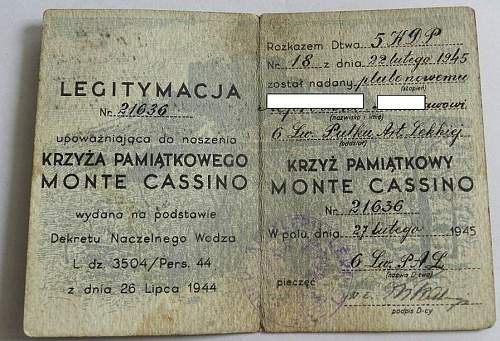 LEGITYMACJA
Nr. 21636
upoważniająca do noszenia
KRZYŻA PAMIĄTKOWEGO
MONTE CASSINO
wydana na podstawie
Dekretu Naczelnego Wodza
L. dz. 3504/Pers. 44
z dnia 26 Lipca 1944
Rozkazem Dtwa 5 KDP
Nr. 18 z dnia 22 lutego 1945
został nadany plutonowemu
(stopień)
(nazwisko i imię)
6 Lw. Pułku Art. Lekkiej
(oddział)
KRZYŻ PAMIĄTKOWY
MONTE CASSINO
Nr. 21636
W polu, dnia 27 lutego 1945
6 Lw. P.A.L.
(nazwa D-twa)
pieczęć
podpis D-cy